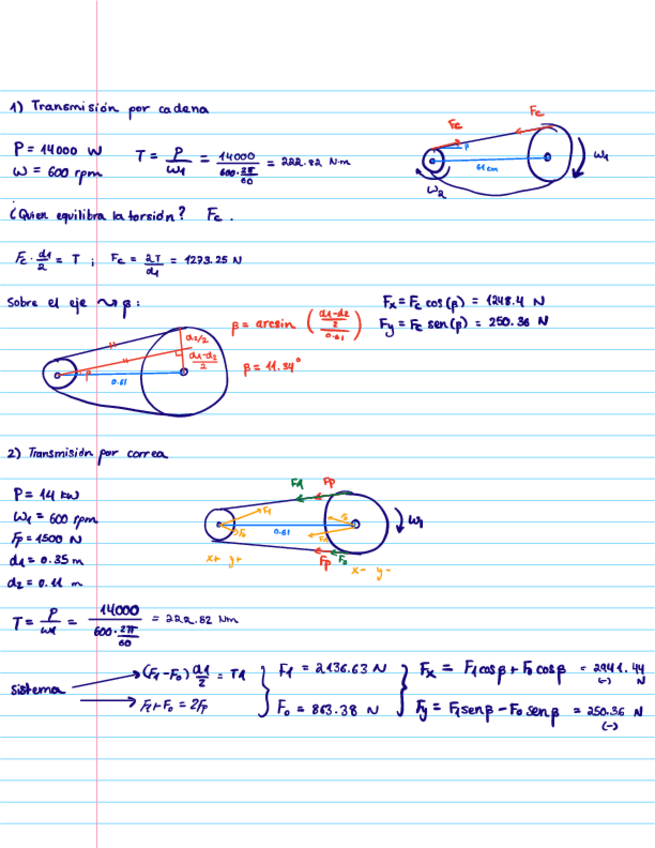 1) Transmisión por cadena
P = 14000 W
ω = 600 rpm
T = P/ω1 = 14000/(600·2π/60) = 222.82 N·m
Fc
Fc
β
61 cm
ω1
ω2
¿Quien equilibra la torsión? Fc.
Fc · d1/2 = T ; Fc = 2T/d1 = 1273.25 N
Sobre el eje ⇝ β:
Fx = Fc cos(β) = 1248.4 N
Fy = Fc sen(β) = 250.36 N
β = arcsin ( ((d1-d2)/2)/0.61 )
β = 11.34°
d2/2
(d1-d2)/2
β
0.61
2) Transmisión por correa
P = 14 kW
ω1 = 600 rpm
Fp = 1500 N
d1 = 0.35 m
d2 = 0.11 m
F1 Fp
F1
F0
0.61
ω1
x+ y+
Fp F0
x- y-
T = P/ω1 = 14000/(600·2π/60) = 222.82 Nm
sistema
(F1-F0) d1/2 = T1
F1+F0 = 2Fp
F1 = 2136.63 N
F0 = 863.38 N
Fx = F1 cos β + F0 cos β = 2941.44 N
(-)
Fy = F1 sen β - F0 sen β = 250.36 N
(-)